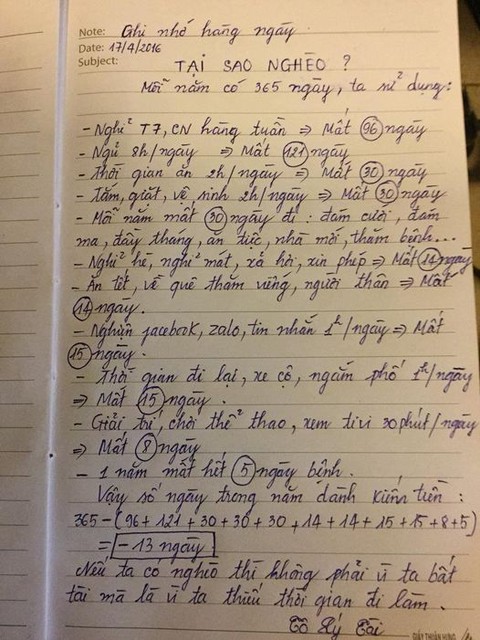 Note: Ghi nhớ hàng ngày
Date: 17/4/2016
Subject: TẠI SAO NGHÈO ?
Mỗi năm có 365 ngày, ta sử dụng:
- Nghỉ T7, CN hàng tuần => Mất 96 ngày
- Ngủ 8h/ngày => Mất 121 ngày
- Thời gian ăn 2h/ngày => Mất 30 ngày
- Tắm, giặt, vệ sinh 2h/ngày => Mất 30 ngày
- Mỗi năm mất 30 ngày đi : đám cưới, đám
ma, đầy tháng, ăn tiệc, nhà mới, thăm bệnh...
- Nghỉ hè, nghỉ mát, xả hơi, xin phép => Mất 14 ngày
- Ăn tết, về quê thăm viếng, người thân => Mất
14 ngày.
- Nghiện facebook, zalo, tin nhắn 1h/ngày => Mất
15 ngày.
- Thời gian đi lại, xe cộ, ngắm phố 1h/ngày
=> Mất 15 ngày.
- Giải trí, chơi thể thao, xem tivi 30 phút/ngày
=> Mất 8 ngày
- 1 năm mất hết 5 ngày bệnh.
Vậy số ngày trong năm dành kiếm tiền :
365 - (96 + 121 + 30 + 30 + 30 + 14 + 14 + 15 + 15 + 8 + 5)
= - 13 ngày
Nếu ta có nghèo thì không phải vì ta bất
tài mà là vì ta thiếu thời gian đi làm.
Cô Lý Tài
GIẤY THUẬN HƯNG